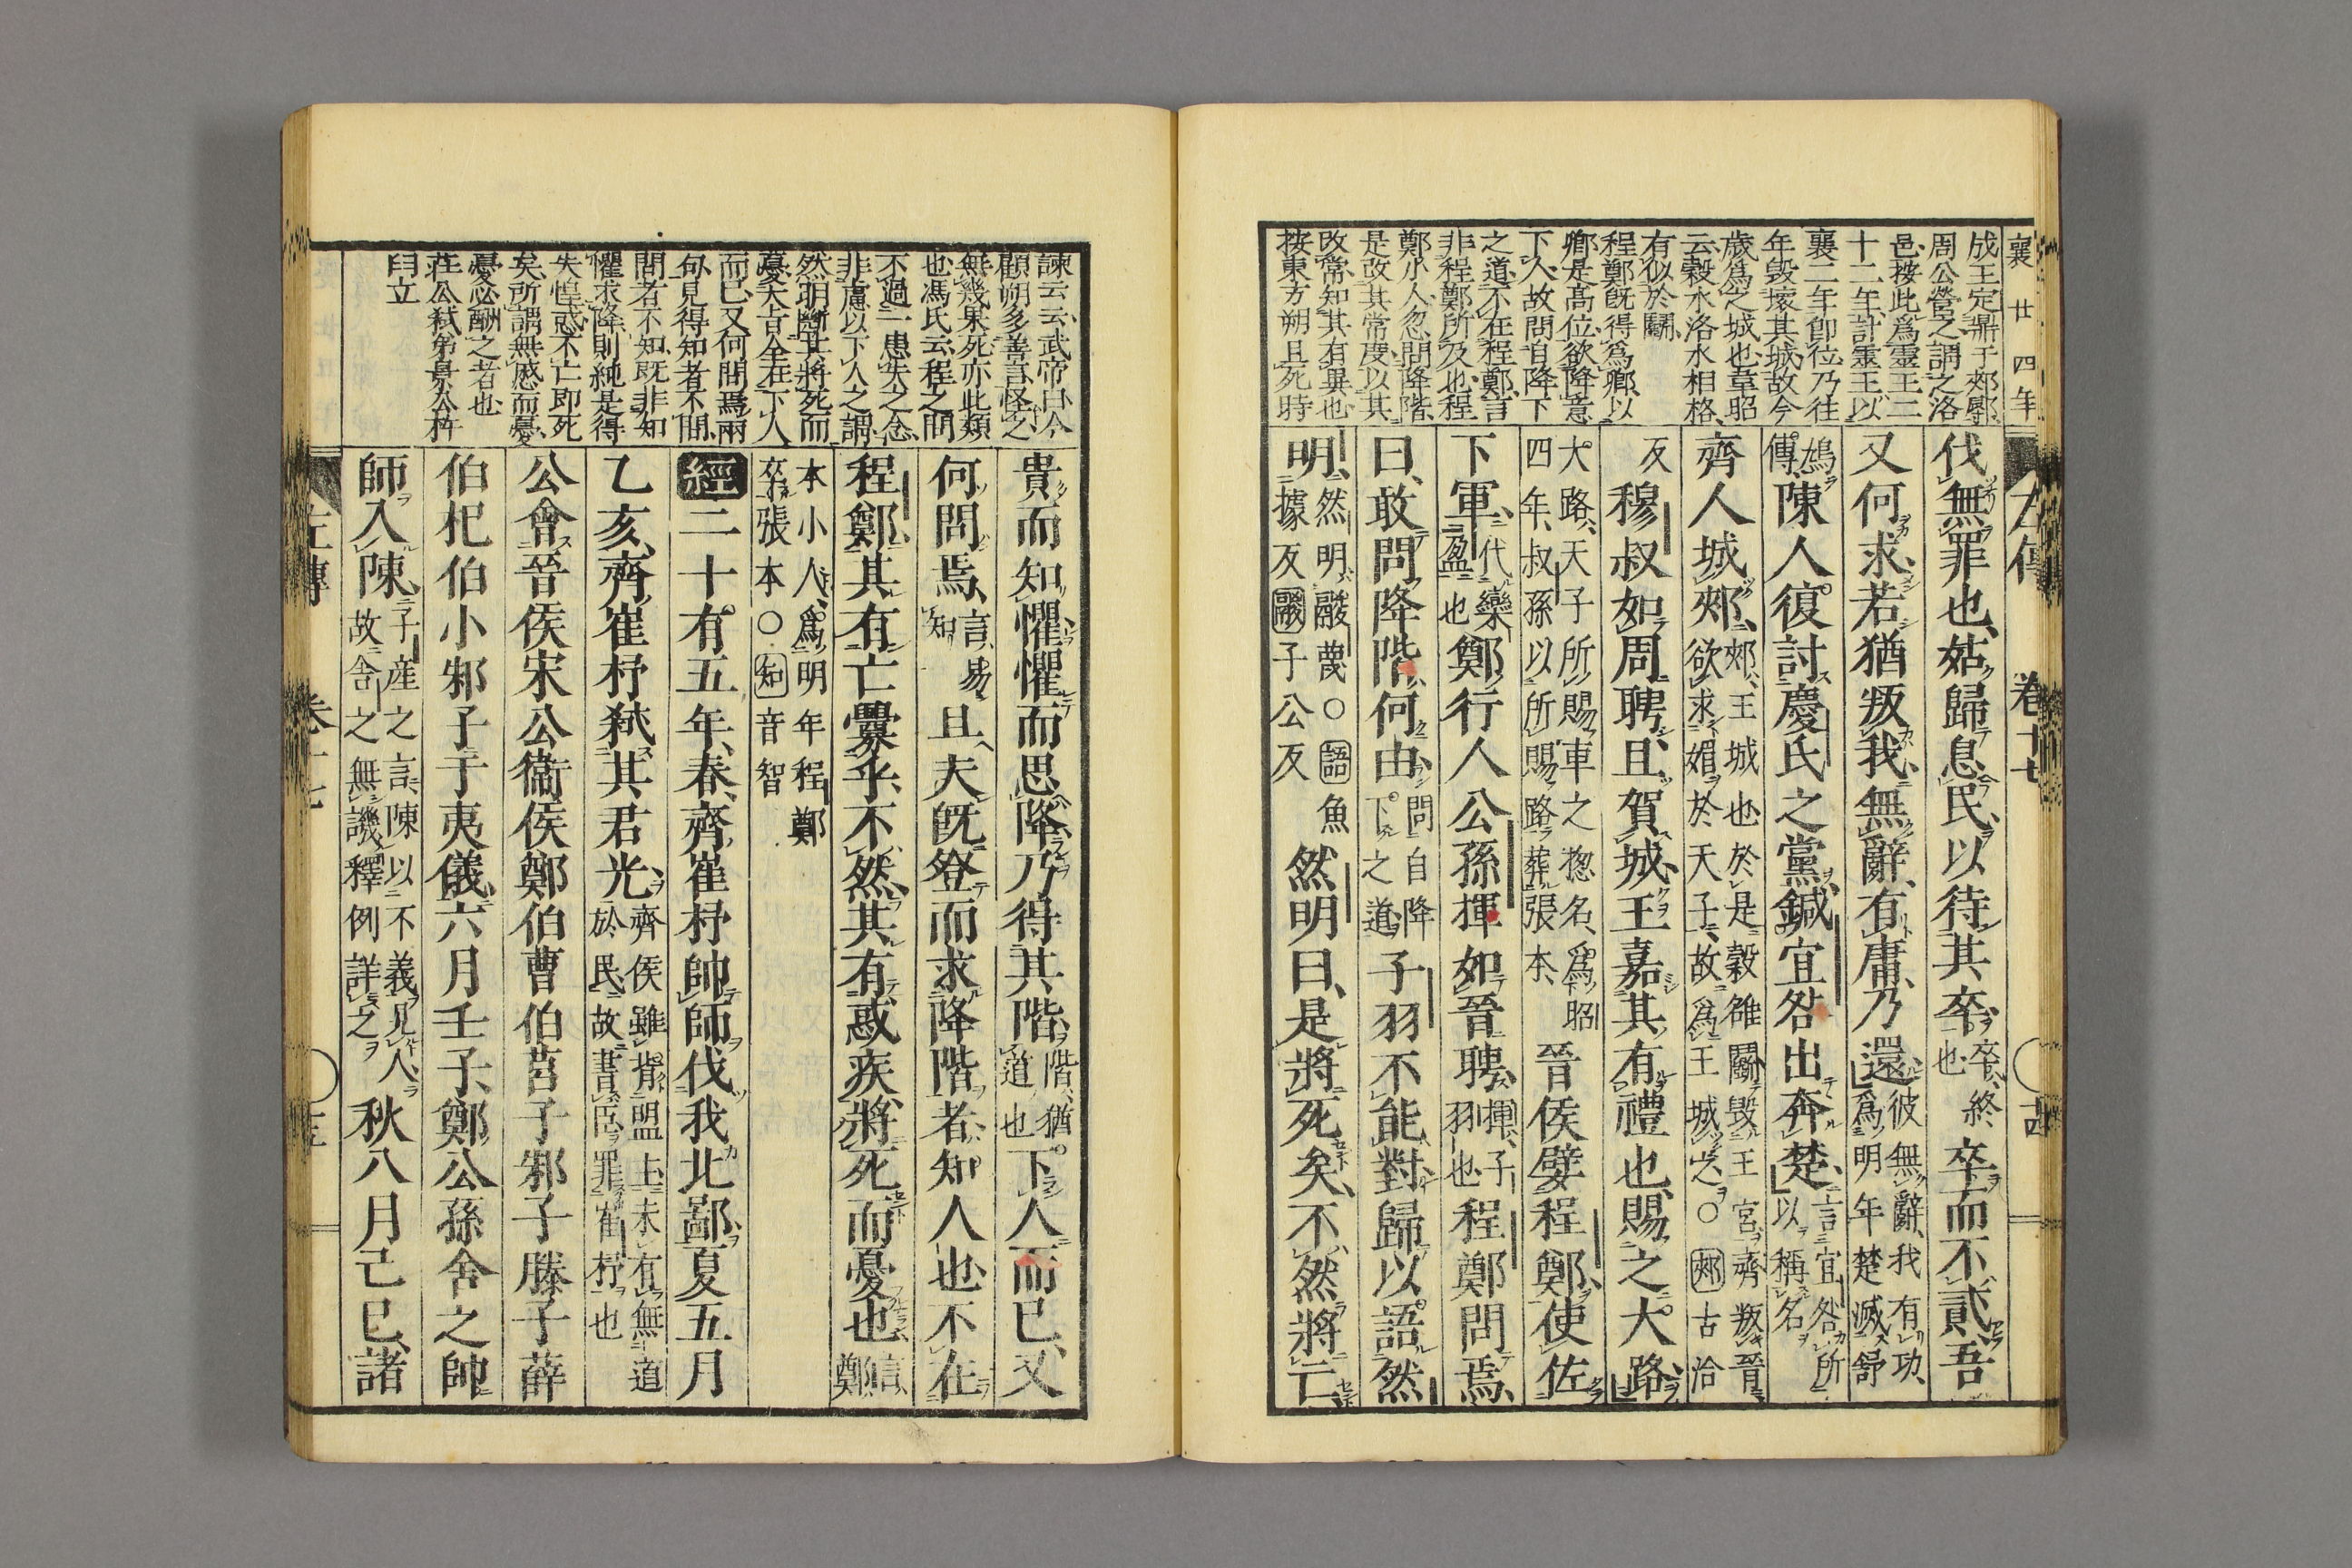 襄廿四年
左傳 卷十七 十四
成王定鼎于郟鄏
周公營之謂之洛
邑按此爲靈王二
十二年計靈王以
襄二年卽位乃往
年毀壞其城故今
歲爲之城也韋昭
云穀水洛水相格
有似於鬭
程鄭旣得爲卿以
卿是高位欲降意
下人故問自降下
之道不在程鄭言
非程鄭所及也程
鄭小人忽問降階
是改其常度以其
改常知其有異也
按東方朔且死時
伐無罪也姑歸息民以待其卒卒終也卒而不貳吾
又何求若猶叛我無辭有庸乃還彼無辭我有功爲明年楚滅舒
鳩傳陳人復討慶氏之黨鍼宜咎出奔楚言宜咎所以稱名
齊人城郟郟王城也於是穀雒鬭毀王宮齊叛晉欲求媚於天子故爲王城之○郟古洽
反穆叔如周聘且賀城王嘉其有禮也賜之大路
大路天子所賜車之揔名爲昭四年叔孫以所賜路葬張本晉侯嬖程鄭使佐
下軍代欒盈也鄭行人公孫揮如晉聘揮子羽也程鄭問焉
曰敢問降階何由問自降下之道子羽不能對歸以語然
明然明鬷蔑○語魚據反鬷子公反然明曰是將死矣不然將亡
諫云云武帝曰今
顧朔多善言怪之
無幾果死亦此類
也馮氏云程之問
不過一患失之念
非慮以下人之謂
然明斷其將死而
憂大旨全在下人
而已又何問焉兩
句見得知者不問
問者不知旣非知
懼求降則純是得
失惶惑不亡即死
矣所謂無慼而憂
憂必讎之者也
莊公弑弟景公杵
臼立
貴而知懼懼而思降乃得其階階猶道也下人而已又
何問焉言易知且夫旣登而求降階者知人也不在
程鄭其有亡釁乎不然其有惑疾將死而憂也言鄭
本小人爲明年程鄭卒張本○知音智
經二十有五年春齊崔杼帥師伐我北鄙夏五月
乙亥齊崔杼弑其君光齊侯雖背盟主未有無道於民故書臣罪崔杼也
公會晉侯宋公衞侯鄭伯曹伯莒子邾子滕子薛
伯杞伯小邾子于夷儀六月壬子鄭公孫舍之帥
師入陳子產之言陳以不義見入故舍之無譏釋例詳之秋八月己巳諸
左傳 卷十七 十五